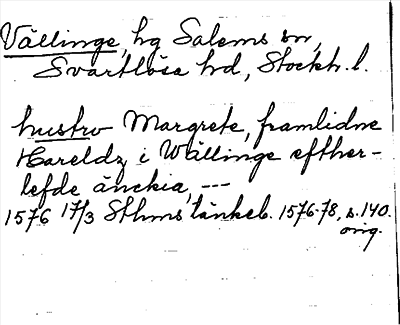 Vällinge, hg Salems sn,
Svartlösa hd, Stockh. l.
hustro Margrete, framlidne
Hareldz i Wällinge efther-
lefde änckia, ---
1576 17/3 Sthms tänkeb. 1576-78, s. 140.
orig.